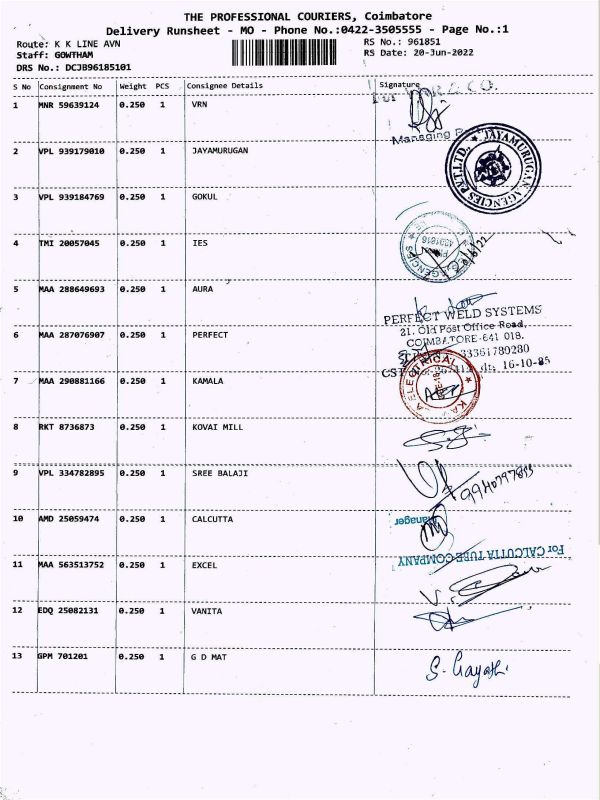 THE PROFESSIONAL COURIERS, Coimbatore
Delivery Runsheet - MO - Phone No.:0422-3505555 - Page No.:1
Route: K K LINE AVN
RS No.: 961851
Staff: GOWTHAM
RS Date: 20-Jun-2022
DRS No.: DCJB96185101
S No Consignment No Weight PCS Consignee Details Signature
1 MNR 59639124 0.250 1 VRN
For & CO.
Managing
2 VPL 939179010 0.250 1 JAYAMURUGAN
JAYAMURUGAN AGENCIES PVT.LTD.
3 VPL 939184769 0.250 1 GOKUL
4 TMI 20057045 0.250 1 IES
5 MAA 288649693 0.250 1 AURA
PERFECT WELD SYSTEMS
21, Old Post Office Road,
COIMBATORE-641 018.
33361780280
CST dt. 16-10-95
6 MAA 287076907 0.250 1 PERFECT
7 MAA 290881166 0.250 1 KAMALA
ELECTRICAL
8 RKT 8736873 0.250 1 KOVAI MILL
9 VPL 334782895 0.250 1 SREE BALAJI
10 AMD 25059474 0.250 1 CALCUTTA
Manager
For CALCUTTA TUBE COMPANY
11 MAA 563513752 0.250 1 EXCEL
12 EDQ 25082131 0.250 1 VANITA
13 GPM 701201 0.250 1 G D MAT
S. Gayathri